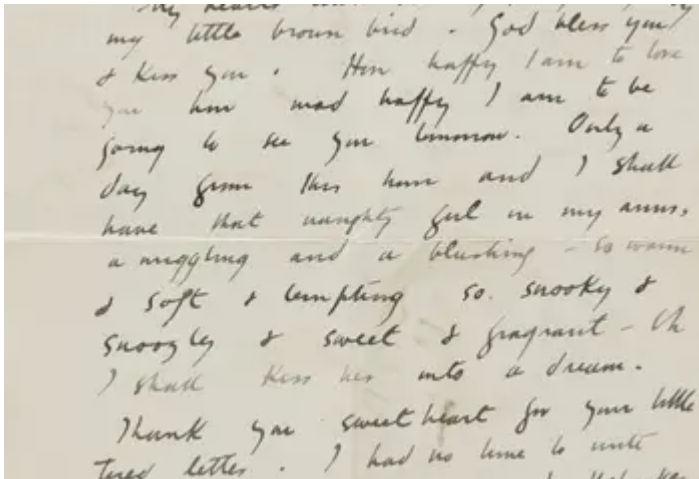 my little brown bird. God bless you
& Kiss you. How happy I am to love
you how mad happy I am to be
going to see you tomorrow. Only a
day from this hour and I shall
have that naughty girl in my arms,
a niggling and a blushing - so warm
& soft & tempting so snooky &
snoogley & sweet & fragrant - Oh
I shall Kiss her into a dream.
Thank you sweetheart for your little
tired letter. I had no time to write